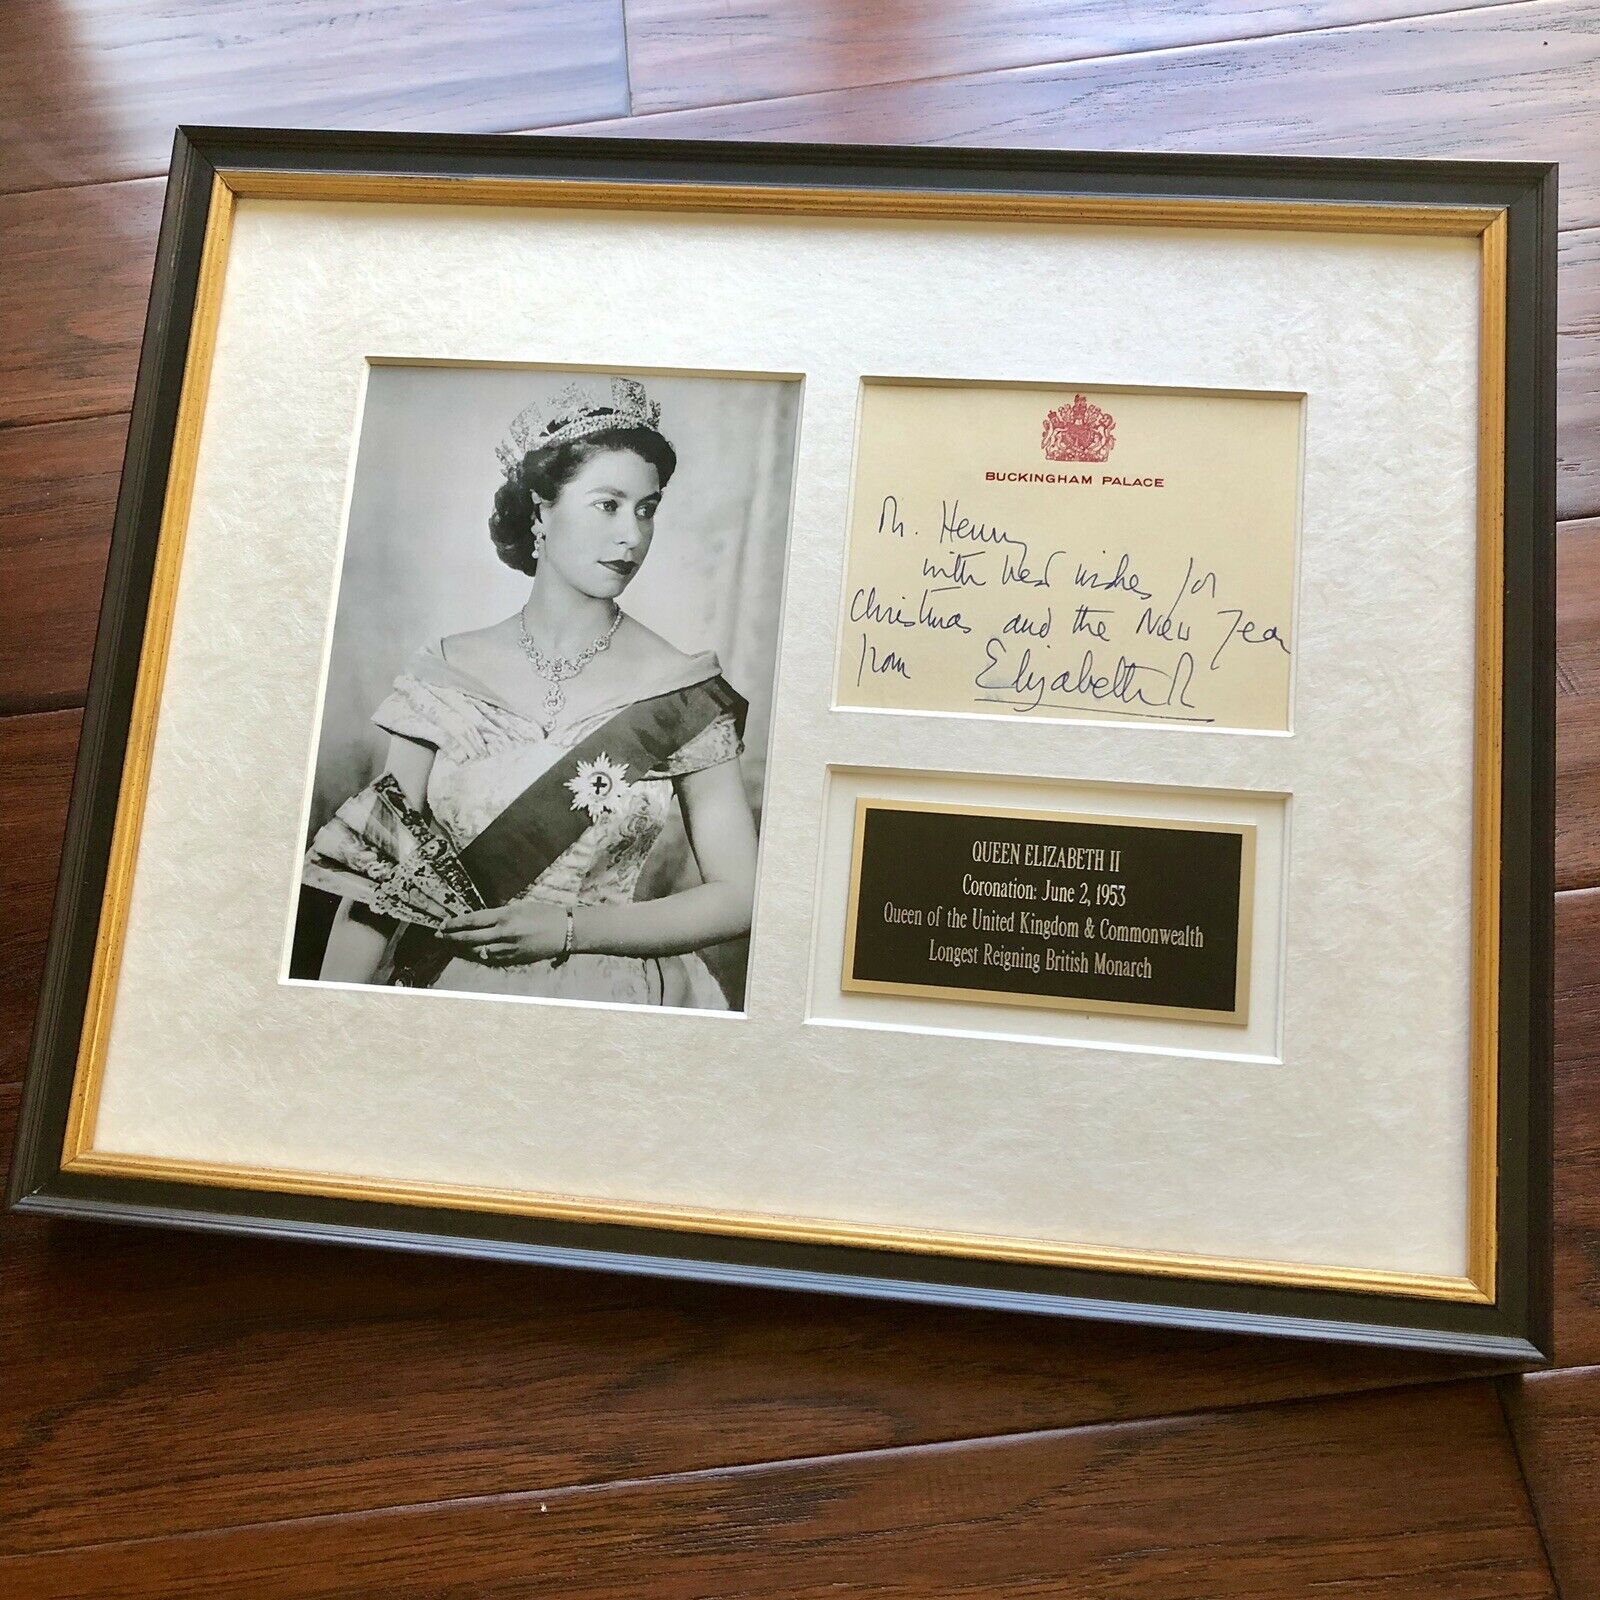 BUCKINGHAM PALACE
Mr. Henry
with best wishes for
Christmas and the New Year
from Elizabeth R
QUEEN ELIZABETH II
Coronation: June 2, 1953
Queen of the United Kingdom & Commonwealth
Longest Reigning British Monarch